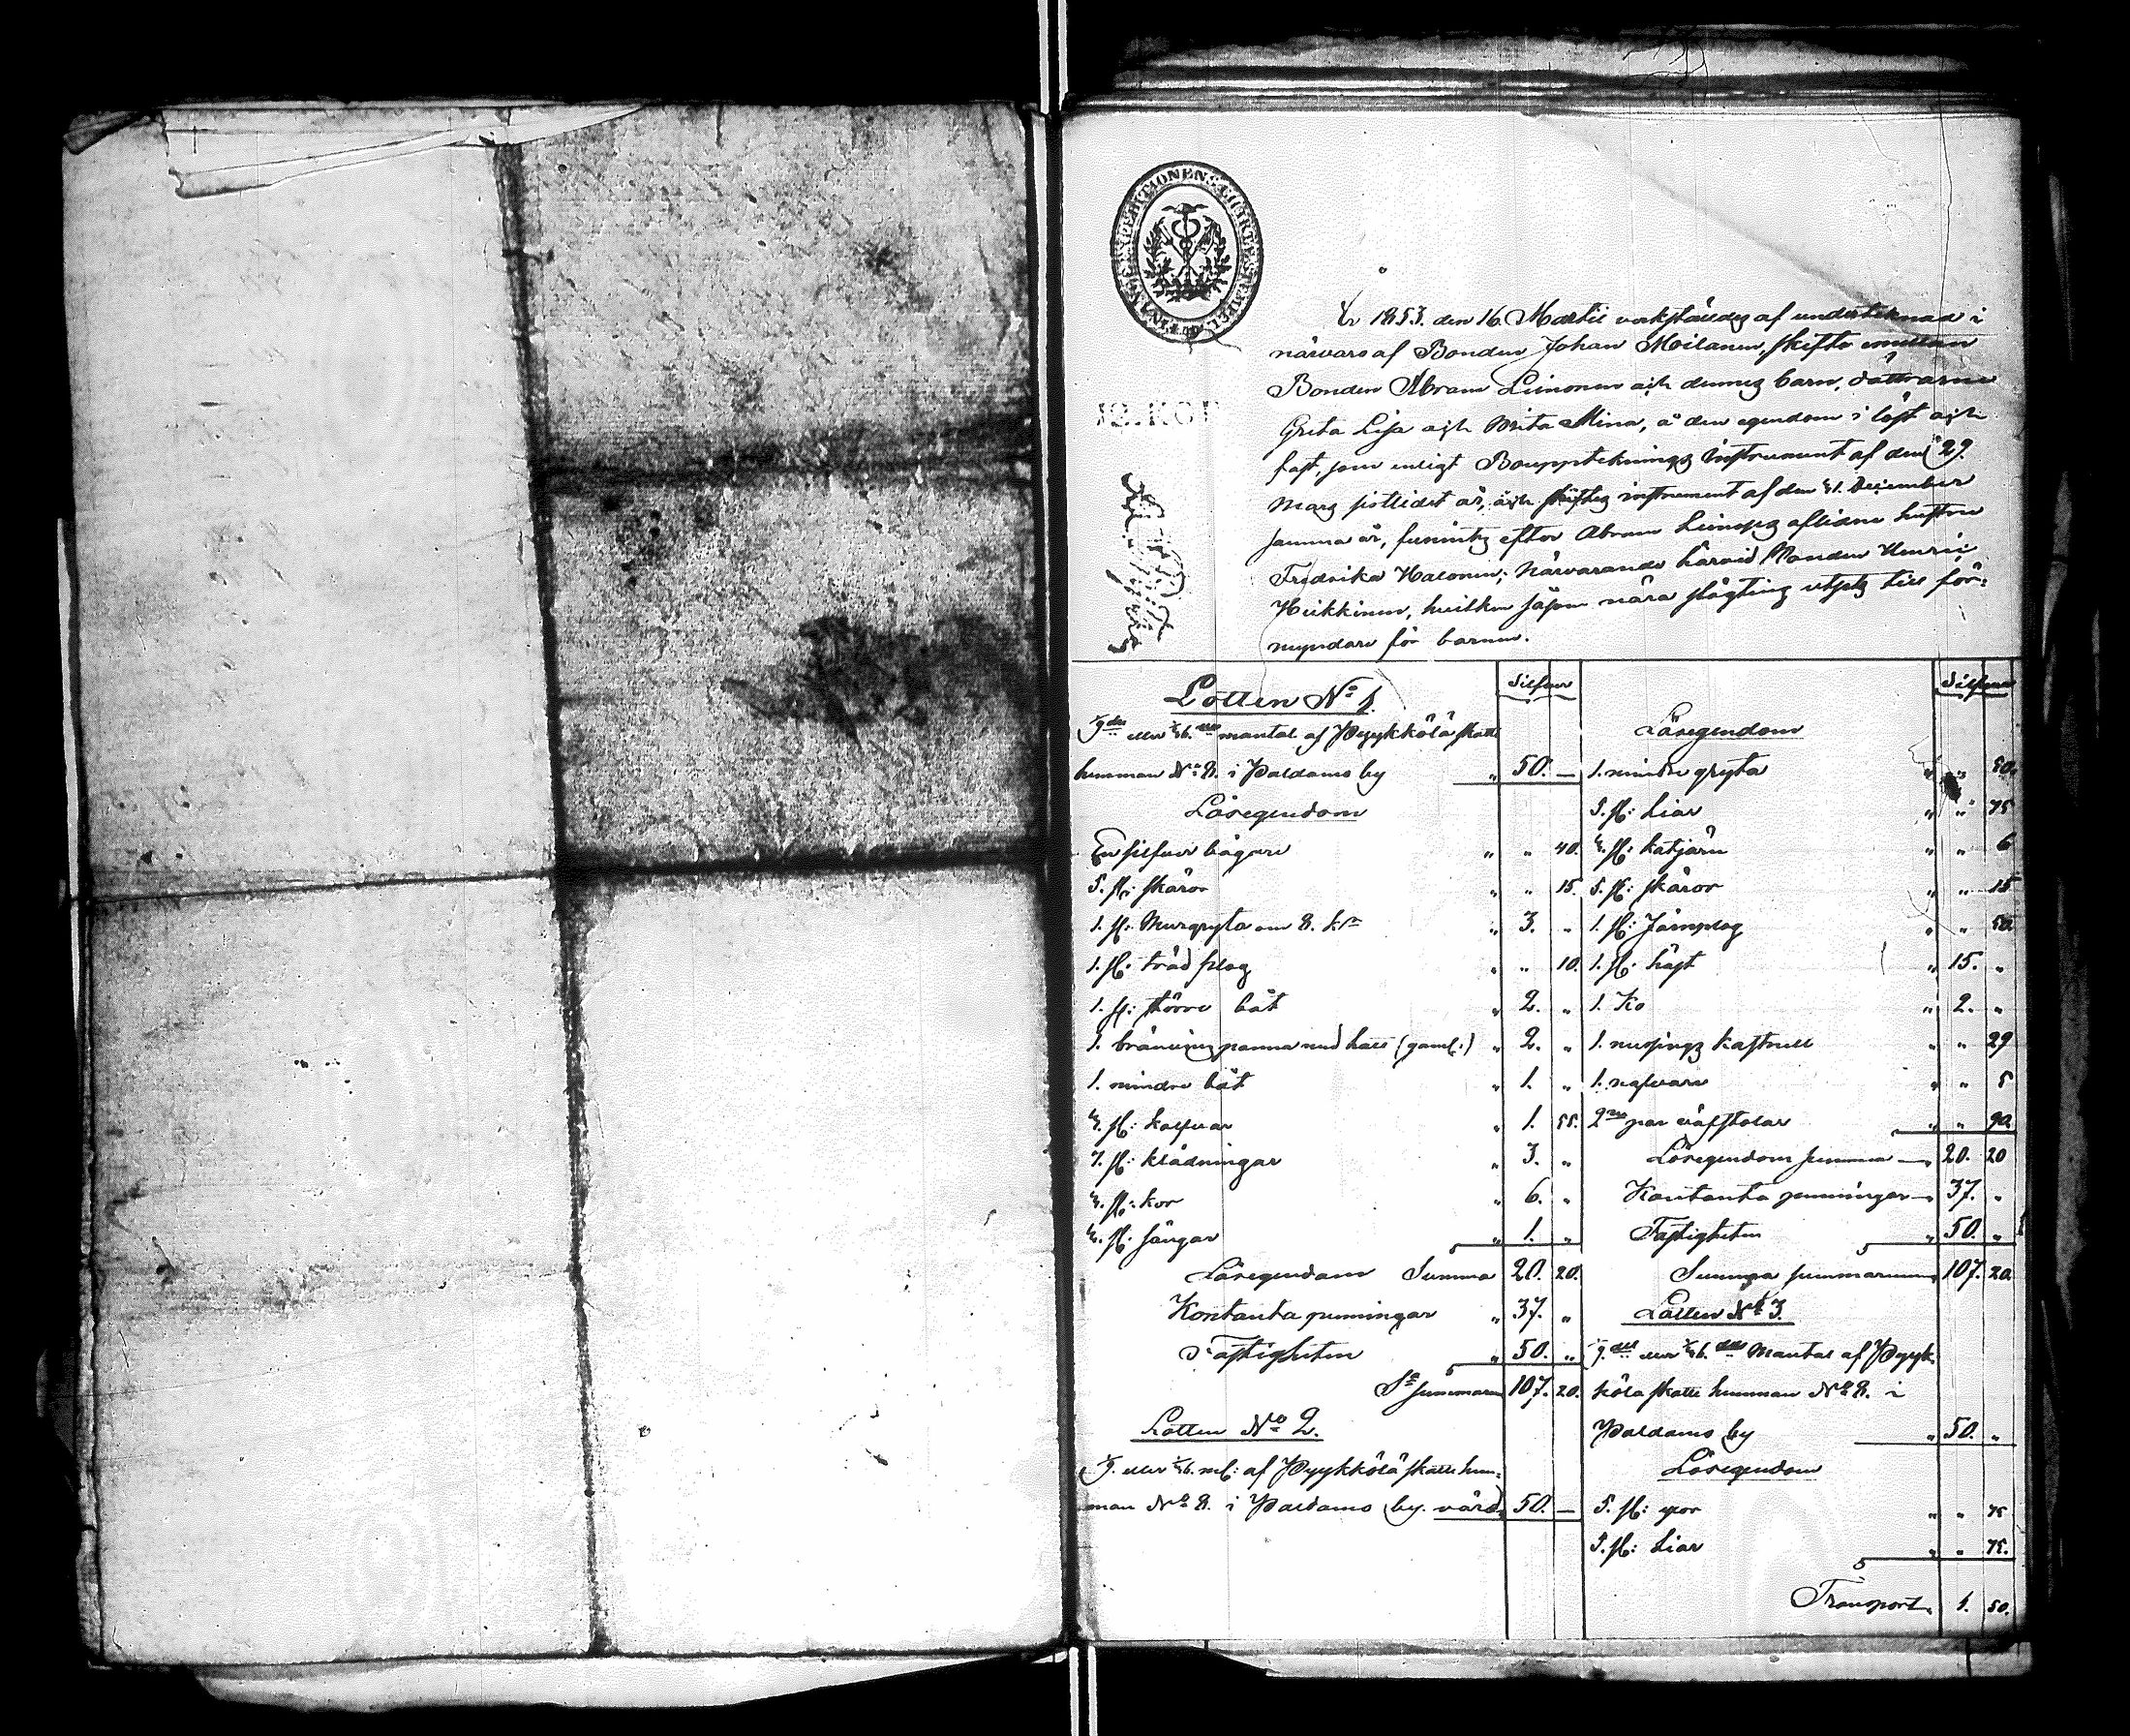 År 1853. den 16. Martii verkställdes af undertecknad i
närvaro af Bonden Johan Moilanen, skifte emellan
Bonden Abram Leinonen och dennes barn, döttrarne
Greta Lisa och Brita Stina, å den egendom i löst och
fast, som enligt Boupptecknings instrument af den 29.
Mars sistlidet år, och skiftes instrument af den 31. December
samma år, funnits efter Abram Leinos aflidne hustru
Fredrika Halonen; Närvarande härvid Bonden Henric
Heikkinen, hvilken såsom nära slägting utsets till för-
myndare för barnen.
12. KOP
Lotten No 1.
Silfver
mantal af Pyykkölä skatte
hemman No 8. i Paldamo by „ 50. —
Lösegendom
En silfver bägare „ „ 40.
5. st: skäror „ „ 15.
1. st: Murgryta om 8. k:r „ 3. „
1. st: träd plog „ „ 10.
1. st: större båt „ 2. „
1. bränvins panna med hatt (gaml:) „ 2. „
1. mindre båt „ 1. „
4. st: kalfvar „ 1. 55.
7. st: klädningar „ 3. „
4. st: kor „ 6. „
4. st: sängar „ 1. „
Lösegendom Summa 20. 20.
Kontanta penningar „ 37. „
Fastigheten „ 50. „
S:a summarum 107. 20.
Lotten No 2.
af Pyykkölä skatte hem-
man No 8. i Paldamo by. värd 50. —
Silfver
Lösegendom
1. mindre gryta „ „ 50.
5. st: Liar „ „ 75
4. st: katjärn „ „ 6
5. st: skäror „ „ 15
1. st: Järnplog „ „ 50
1. st: häst „ 15. „
1. Ko „ 2. „
1. messings kastrull „ „ 29
1. nafvare „ „ 5
2:ne par väfstolar „ „ 90.
Lösegendom summa — 20. 20
Kontanta penningar — 37. „
Fastigheten „ 50. „
Summa summarum 107. 20.
Lotten No 3.
Mantal af Pyyk-
kölä skatte hemman No 8. i
Paldamo by „ 50. „
Lösegendom
5. st: yxor „ „ 75
5. st: Liar „ „ 75.
Transport „ 1. 50.